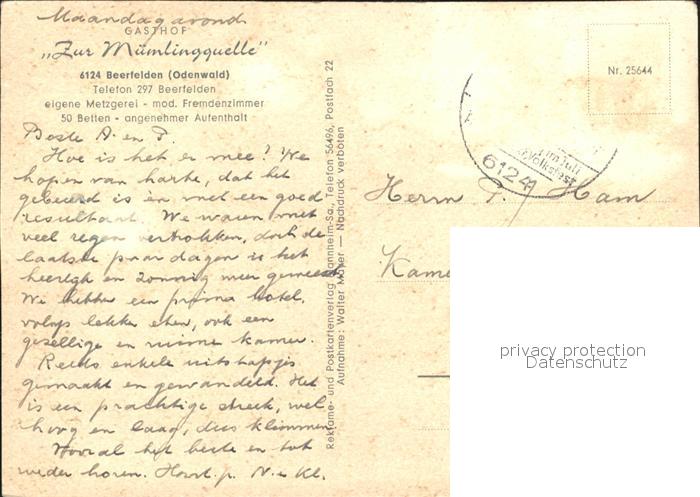 Maandagavond
GASTHOF
„Zur Mümlingquelle"
6124 Beerfelden (Odenwald)
Telefon 297 Beerfelden
eigene Metzgerei - mod. Fremdenzimmer
50 Betten - angenehmer Aufenthalt
Beste A. en P.
Hoe is het er mee? We
hopen van harte, dat het
gebeurd is èn met een goed
resultaat. We waren met
veel regen vertrokken, doch de
laatste paar dagen is het
heerlijk en zonnig weer geweest.
We hebben een prima hotel,
volop lekker eten, ook een
gezellige en ruime kamer.
Reeds enkele uitstapjes
gemaakt en gewandeld. Het
is een prachtige streek, wel
hoog en laag, dus klimmen.
Vooral het beste en tot
weder horen. Hart. gr. N. e Kl.
Reklame- und Postkartenverlag Mannheim-Sa., Telefon 56496, Postfach 22
Aufnahme: Walter Mayer — Nachdruck verboten
Nr. 25644
im Juli
Volksfest
6124
Herrn P. Ham
Kame
privacy protection
Datenschutz